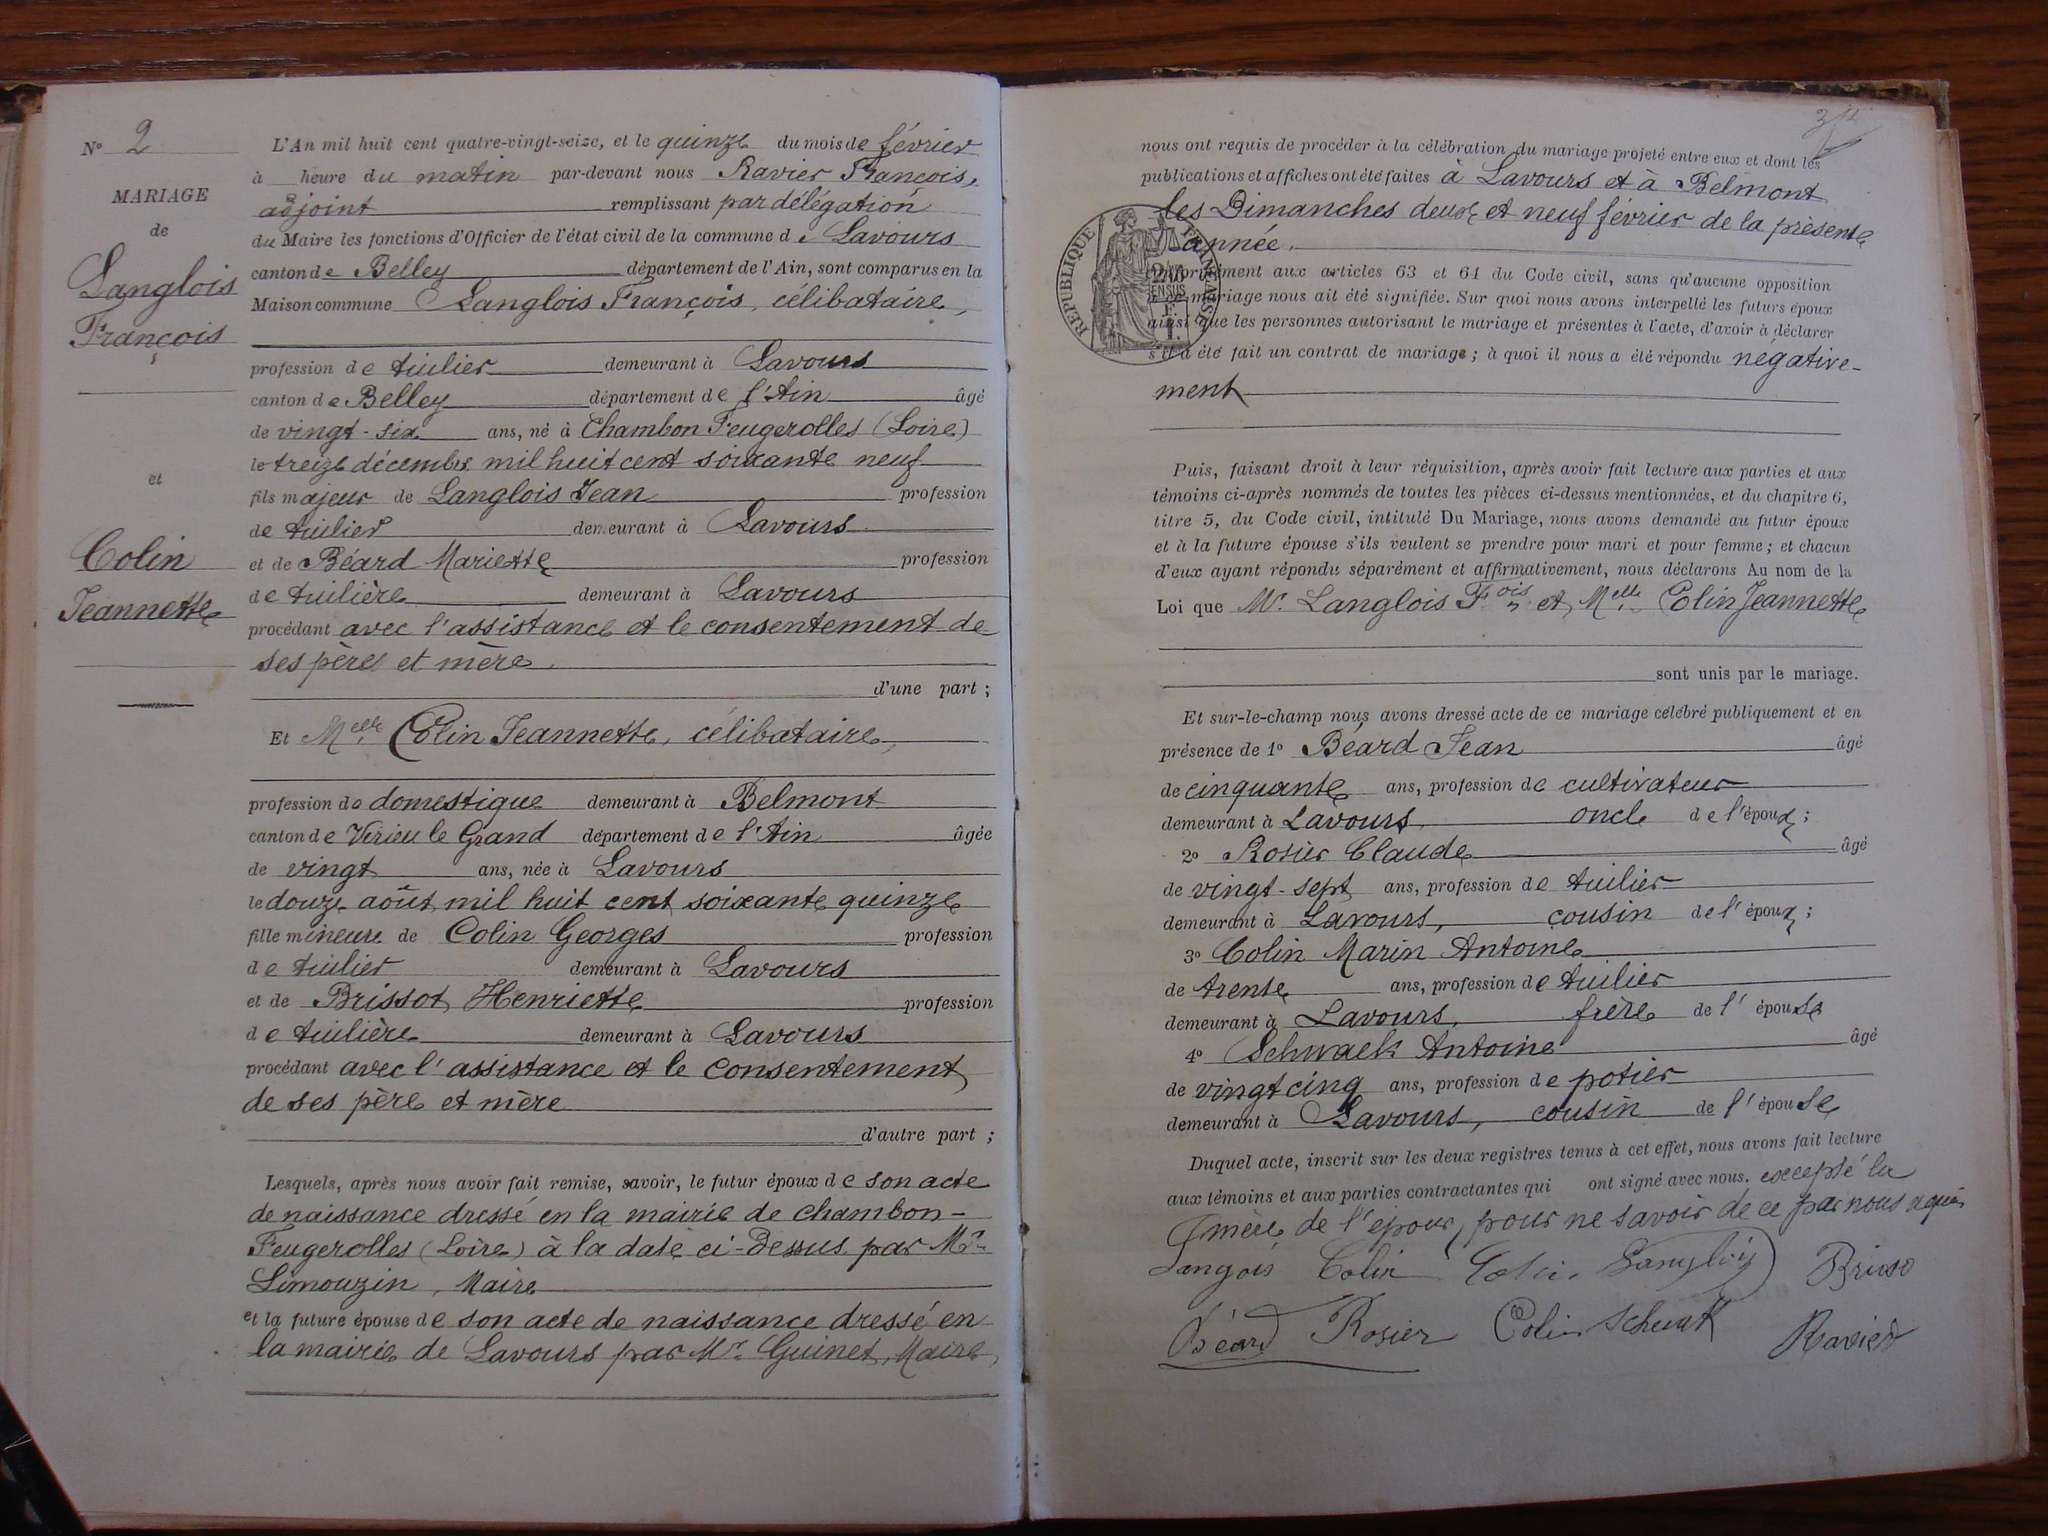 N° 2
MARIAGE
de
Langlois
François
et
Colin
Jeannette
L'An mil huit cent quatre-vingt-seize, et le quinze du mois de février
à heure du matin par-devant nous Ravier François,
adjoint remplissant par délégation
du Maire les fonctions d'Officier de l'état civil de la commune de Lavours
canton de Belley département de l'Ain, sont comparus en la
Maison commune Langlois François, célibataire,
profession de tuilier demeurant à Lavours
canton de Belley département de l'Ain âgé
de vingt-six ans, né à Chambon Feugerolles (Loire)
le treize décembre mil huit cent soixante neuf
fils majeur de Langlois Jean profession
de tuilier demeurant à Lavours
et de Béard Mariette profession
de tuilière demeurant à Lavours
procédant avec l'assistance et le consentement de
ses père et mère
d'une part ;
Et Melle Colin Jeannette, célibataire,
profession de domestique demeurant à Belmont
canton de Virieu le Grand département de l'Ain âgée
de vingt ans, née à Lavours
le douze août mil huit cent soixante quinze
fille mineure de Colin Georges profession
de tuilier demeurant à Lavours
et de Brissot Henriette profession
de tuilière demeurant à Lavours
procédant avec l'assistance et le consentement
de ses père et mère
d'autre part ;
Lesquels, après nous avoir fait remise, savoir, le futur époux de son acte
de naissance dressé en la mairie de Chambon-
Feugerolles (Loire) à la date ci-dessus par Mr
Limouzin, Maire
et la future épouse de son acte de naissance dressé en
la mairie de Lavours par Mr Guinet, Maire,
nous ont requis de procéder à la célébration du mariage projeté entre eux et dont les
publications et affiches ont été faites à Lavours et à Belmont
les Dimanches deux et neuf février de la présente
année.
RÉPUBLIQUE FRANÇAISE
EN SUS
Conformément aux articles 63 et 64 du Code civil, sans qu'aucune opposition
à ce mariage nous ait été signifiée. Sur quoi nous avons interpellé les futurs époux
ainsi que les personnes autorisant le mariage et présentes à l'acte, d'avoir à déclarer
s'il a été fait un contrat de mariage ; à quoi il nous a été répondu négative-
ment
Puis, faisant droit à leur réquisition, après avoir fait lecture aux parties et aux
témoins ci-après nommés de toutes les pièces ci-dessus mentionnées, et du chapitre 6,
titre 5, du Code civil, intitulé Du Mariage, nous avons demandé au futur époux
et à la future épouse s'ils veulent se prendre pour mari et pour femme ; et chacun
d'eux ayant répondu séparément et affirmativement, nous déclarons Au nom de la
Loi que Mr. Langlois Fois et Melle Colin Jeannette
sont unis par le mariage.
Et sur-le-champ nous avons dressé acte de ce mariage célébré publiquement et en
présence de 1° Béard Jean âgé
de cinquante ans, profession de cultivateur
demeurant à Lavours, oncle de l'époux ;
2° Rosier Claude âgé
de vingt-sept ans, profession de tuilier
demeurant à Lavours, cousin de l'époux ;
3° Colin Marin Antoine
de trente ans, profession de tuilier
demeurant à Lavours, frère de l'épouse
4° Schwaek Antoine âgé
de vingt cinq ans, profession de potier
demeurant à Lavours, cousin de l'épouse
Duquel acte, inscrit sur les deux registres tenus à cet effet, nous avons fait lecture
aux témoins et aux parties contractantes qui ont signé avec nous. excepté la
mère de l'époux, pour ne savoir de ce par nous requis
Langois Colin Colin Langlois Brisso
Béard Rosier Colin Schwak Ravier